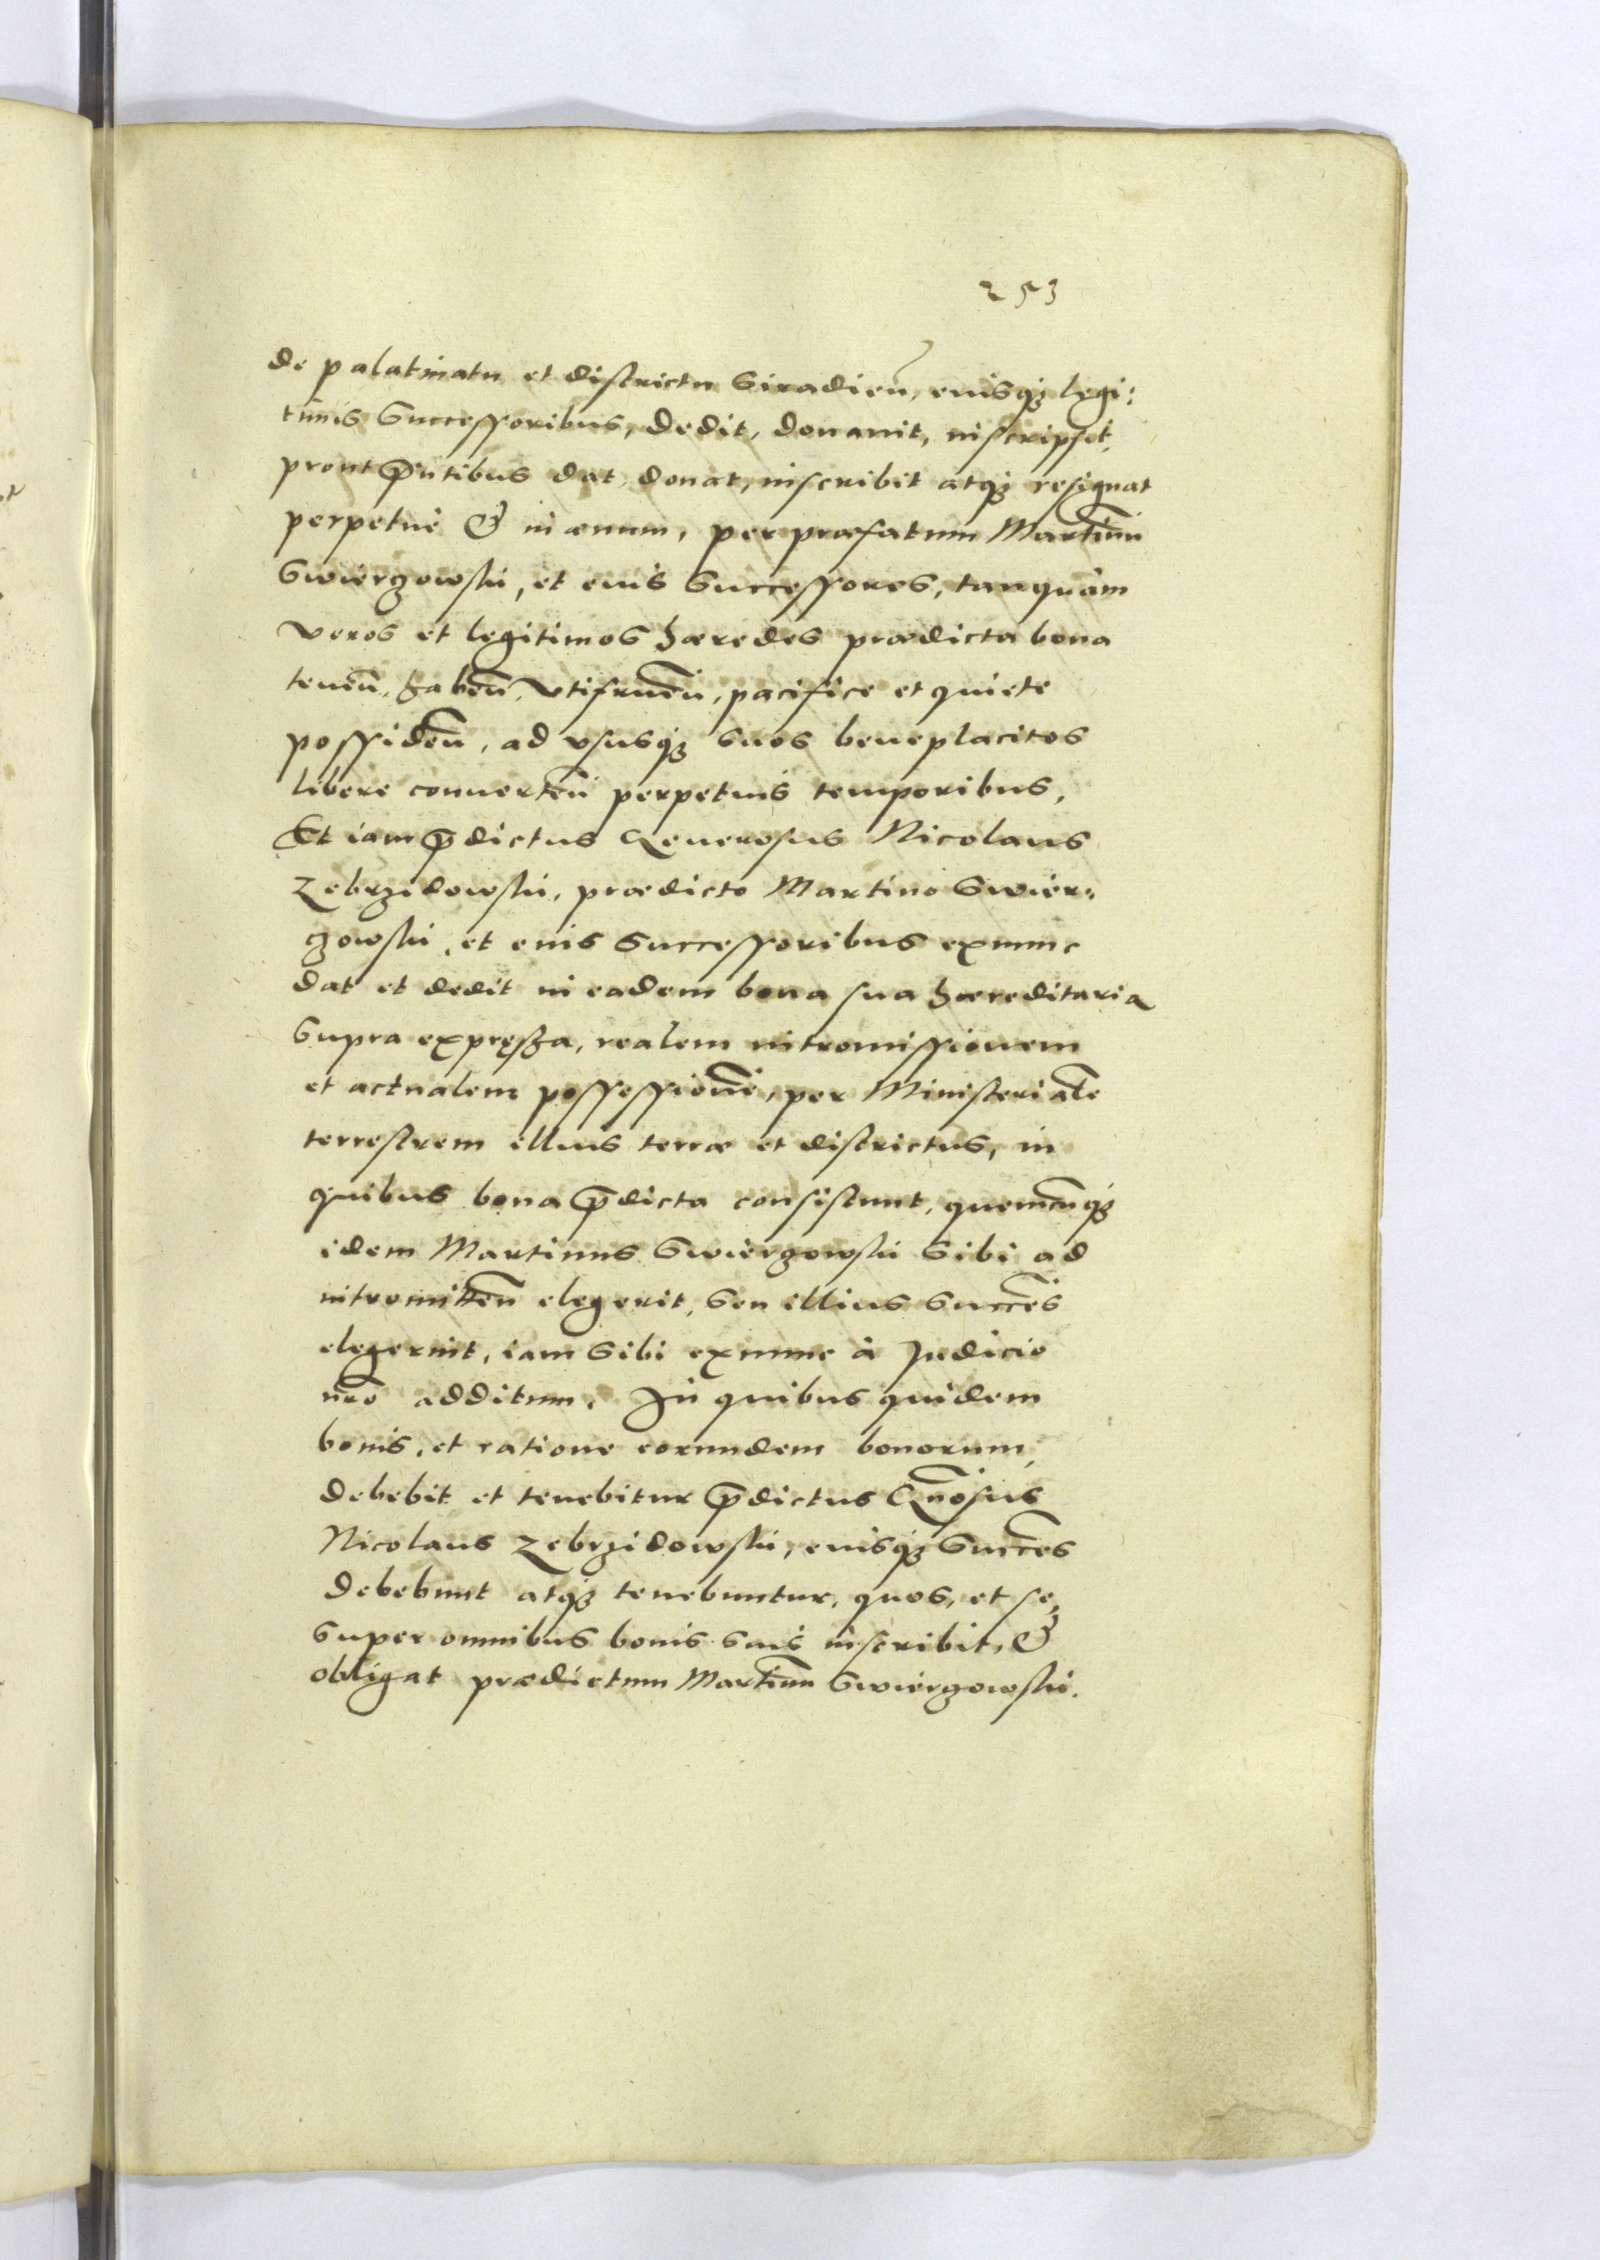 253
de palatinatu et districtu Siradień, eiusq₃ legi:
timis Successoribus, dedit, donauit, inscripsit,
prout p̃ntibus dat donat, inscribit atq₃ resignat
perpetuè & in æuum, per præfatum Martinū
Swierczowski, et eius Successores, tanquàm
veros et legitimos hæredes prædicta bona
teneñ, habeñ, vtifrueñ, pacifice et quiete
possideñ, ad vsusq₃ suos beneplacitos
libere conuerteñ perpetuis temporibus,
Et iam p̃dictus Generosus Nicolaus
Zebrzidowski, prædicto Martino Swier-
czowski, et eius Successoribus exnunc
dat et dedit in eadem bona sua hæreditaria
supra expręssa, realem intromissionem
et actualem possessionē, per Ministerialē
terrestrem illius terræ et districtus, in
quibus bona p̃dicta consistunt, quemcūq₃
idem Martinus Swierczowski sibi ad
intromitteñ elegerit, seu illius Succes̃
elegerint, iam sibi exnunc à Judicio
nr̃o additum. In quibus quidem
bonis, et ratione eorundem bonorum,
debebit et tenebitur p̃dictus Gñosus
Nicolaus Zebrzidowski, eiusq₃ Succes̃
debebunt atq₃ tenebuntur, quos, et se,
super omnibus bonis suis inscribit, &
obligat prædictum Martinū Swierczowski.